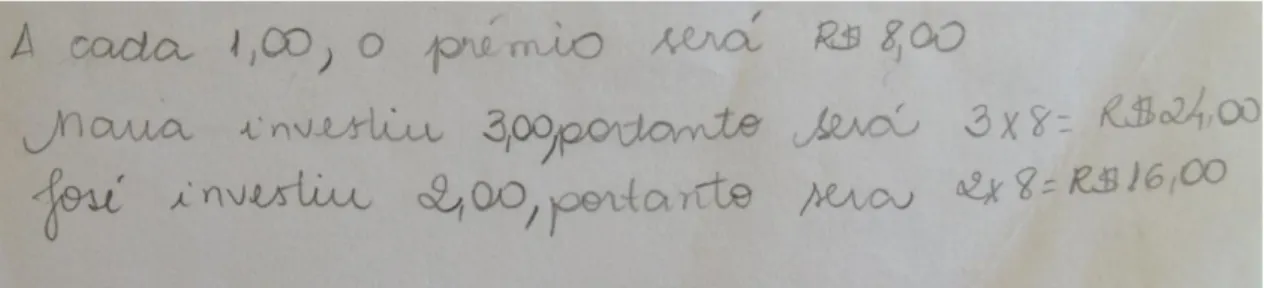 A cada 1,00, o prêmio será R$ 8,00
Maria investiu 3,00, portanto será 3x8= R$24,00
José investiu 2,00, portanto sera 2x8=R$16,00